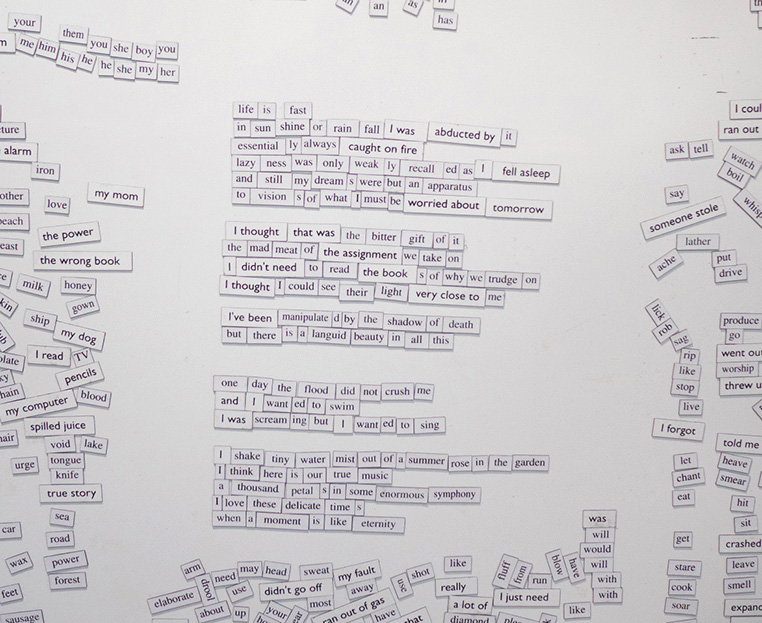 an as in
has
your them you she boy you
me him his he he she my her
life is fast
in sun shine or rain fall I was abducted by it
essential ly always caught on fire
lazy ness was only weak ly recall ed as I fell asleep
and still my dream s were but an apparatus
to vision s of what I must be worried about tomorrow
I thought that was the bitter gift of it
the mad meat of the assignment we take on
I didn't need to read the book s of why we trudge on
I thought I could see their light very close to me
I've been manipulate d by the shadow of death
but there is a languid beauty in all this
one day the flood did not crush me
and I want ed to swim
I was scream ing but I want ed to sing
I shake tiny water mist out of a summer rose in the garden
I think here is our true music
a thousand petal s in some enormous symphony
I love these delicate time s
when a moment is like eternity
alarm
iron
my mom
love
the power
the wrong book
milk honey
gown
ship
my dog
I read TV
pencils
my computer blood
spilled juice
void lake
urge tongue
knife
true story
sea
car
road
wax power
forest
feet
sausage
ask tell
say
someone stole
lather
ache
put
drive
lick
rob
sag
rip
like
stop
live
I forgot
let
chant
eat
get
stare
cook
soar
ran out
watch
boil
produce
go
worship
told me
heave
smear
hit
sit
crashed
leave
smell
was
will
would
will
with
with
arm drool need may head sweat my fault use shot like
elaborate use didn't go off away really
about up your most ran out of gas have a lot of
fluff from run blow have
I just need
like
diamond